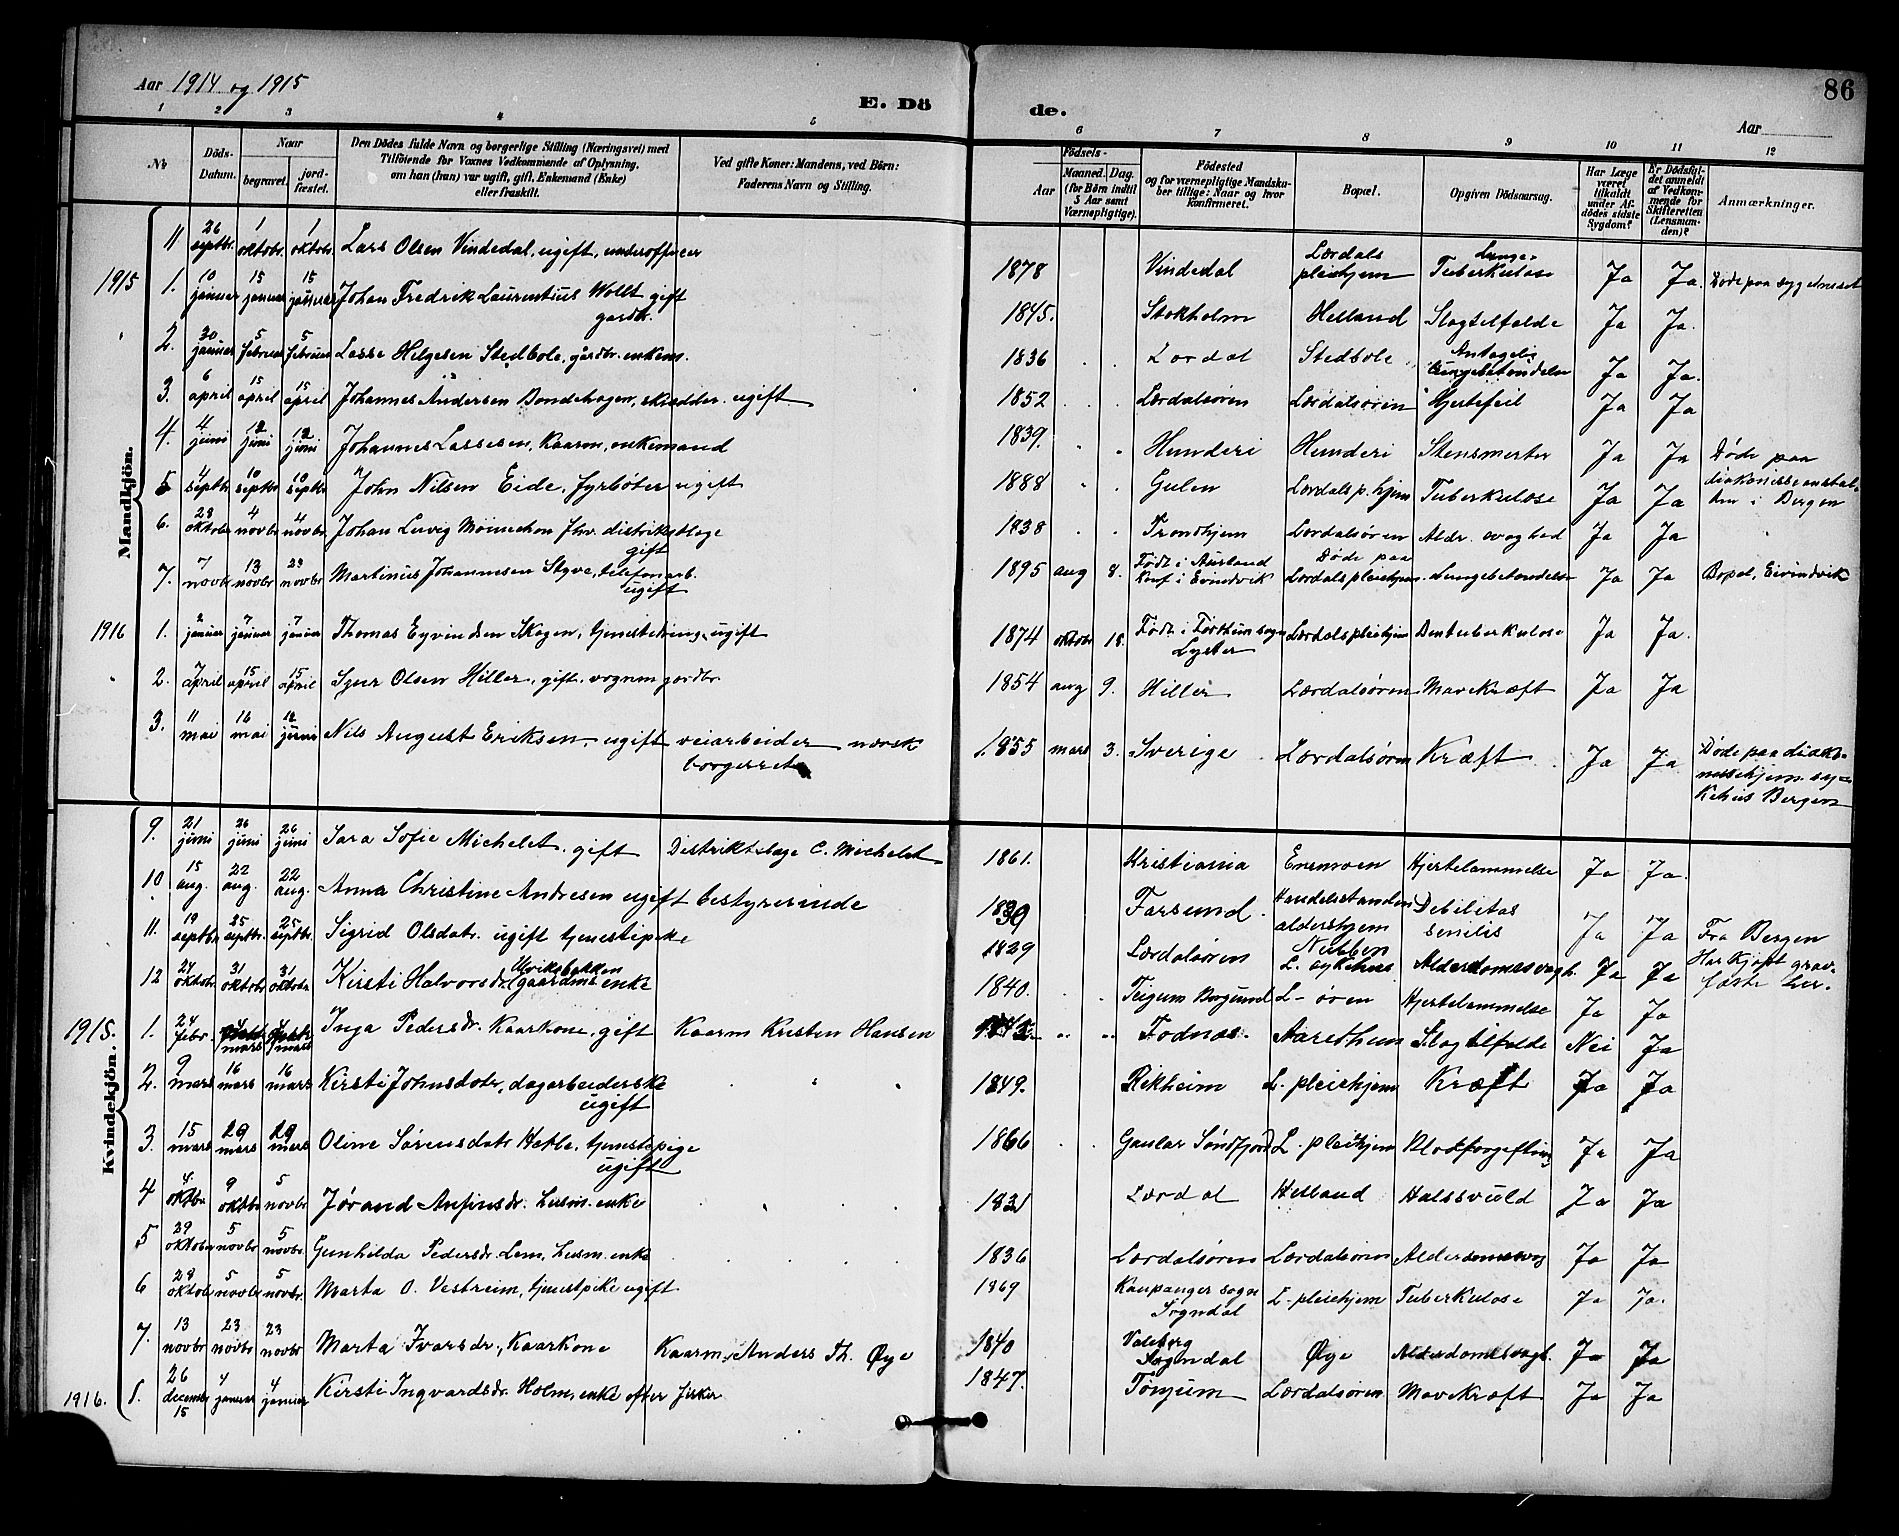 Aar 1914 og 1915
E. Dö
de.
86
Aar
1 2 3 4 5 6 7 8 9 10 11 12
No
Döds-Datum.
Naar
begravet.
jord-fæstet.
Den Dödes fulde Navn og borgerlige Stilling (Næringsvei) med
Tilföiende for Voxnes Vedkommende af Oplysning,
om han (hun) var ugift, gift, Enkemand (Enke)
eller fraskilt.
Ved gifte Koner: Mandens, ved Börn:
Faderens Navn og Stilling.
Födsels-
Aar
Maaned. Dag.
(for Börn indtil
5 Aar samt
Værnepligtige).
Födested
og for værnepligtige Mandska-
ber tillige: Naar og hvor
konfirmeret.
Bopæl.
Opgiven Dödsaarsag.
Har Læge
været
tilkaldt
under Af-
dödes sidste
Sygdom?
Er Dödsfal-
det anmeldt
af Vedkom-
mende for
Skifteretten
(Lensman-
den)?
Anmærkninger.
Mandkjön.
11 26 septbr. 1 oktobr. 1 oktobr Lars Olsen Vindedal, ugift, underofficer 1878 Vindedal Lærdals pleiehjem Lunge-Tuberkulose Ja Ja. Døde paa sygehuset
1915 1. 10 januar 15 januar 15 januar Johan Fredrik Laurentius Wollt gift gardbr. 1845. Stokholm Helland Slagtilfælde Ja Ja.
2. 30 januar 5 februar 5 februar Lasse Helgesen Stedbole, gårdbr. enkem. 1836 Lærdal Stedbole Antagelig Lungebetændelse Ja Ja.
3. 6 april 15 april 15 april Johannes Andersen Bondehagen, skrædder. ugift 1852 Lærdalsøren Lærdalsøren Hjertefeil Ja Ja
4. 4 juni 12 juni 12 juni Johannes Lassesen, Kaarm, enkemand 1839. Hunderi Hunderi Stensmerter Ja Ja Døde paa diakonisseanstalten i Bergen
5 4 septbr 10 septbr 10 septbr John Nilsen Eide, fyrbøter ugift 1888 Gulen Lærdals p.hjem Tuberkulose Ja Ja
6. 28 oktobr 4 novbr 4 novbr Johan Luvig Münchow fhv. distriktslæge gift 1838 Trondhjem Lærdalsøren Aldr. svaghed Ja Ja
7. 7 novbr 13 novbr 23 novbr Martinus Johannesen Styve, telefonarb. ugift 1895 aug 8. Født i Aurland Knf i Evindvik Døde paa Lærdals pleiehjem. Lungebetændelse Ja Ja Bopel, Eivindvik
1916 1. 2 januar 7 januar 7 januar Thomas Eyvindsen Skagen, tjenestedreng, ugift 1874 oktobr 18. Født i Fortun sogn Lyster Lærdals pleiehjem Bentuberkulose Ja Ja.
2. 7 april 15 april 15 april Sjur Olsen Hiller, gift, vognm gardbr. 1854 aug 9. Hiller Lærdalsøren Mavekræft Ja Ja
3. 11 mai 16 mai 12 juni Nils August Eriksen, ugift veiarbeider norsk borgerret 1855 mars 3. Sverige Lærdalsøren Kræft Ja Ja Døde paa diakonissehjem. sygehus Bergen
Kvindekjön.
9. 21 juni 26 juni 26 juni Sara Sofie Michelet. gift Distriktslæge C. Michelet 1861. Kristiania Enemoen Hjertelammelse Ja Ja.
10 15 aug. 22 aug. 22 aug. Anna Christine Andresen ugift bestyrerinde 1839 Farsund. Handelsstandens aldershjem Debilitas senilis Ja Ja Fra Bergen Har kjøpt gravfæste her.
11. 19 septbr 25 septbr. 25 septbr. Sigrid Olsdatr. ugift tjenestpike 1829 Lærdalsøren L. sykehus Alderdomssvagh. Ja Ja
12 24 oktobr 31 oktobr 31 oktobr Kirsti Halvorsdr. gaardms enke 1840. Teigum Borgund L-øren Hjertelammelse Ja Ja
1915. 1. 24 febr. mars mars Inga Pedersdr. Kaarkone, gift Kaarm Kristen Hansen Fodnæs. Aarethun Slagtilfælde Nei Ja
2. 9 mars 16 mars 16 mars Kirsti Johnsdotr, dagarbeiderske ugift 1849. Rikheim L. pleiehjem Kræft Ja Ja
3 15 mars 20 mars 20 mars Oline Sørensdatr Hatle, tjenestepige ugift 1866 Gaular Søndfjord L-pleiehjem Blodforgiftning Ja Ja
4 4 oktbr 9 oktbr 5 novbr Jørand Anfinsdr. Husm. enke 1831 Lærdal Helland Halssvuld Ja Ja
5 29 oktobr 5 novbr 5 novbr. Gunhilda Pedersdr. Lem, Husm. enke 1836 Lærdalsøren Lærdalsøren Alderdomssvag Ja Ja
6 28 oktob 5 novbr 5 novbr. Marta O. Vestreim, tjenestpike ugift 1869 Kaupanger sogn Sogndal L-pleiehjem Tuberkulose Ja Ja.
7. 13 novbr 23 novbr 23 novbr Marta Ivarsdr., Kaarkone Kaarm. Anders Th. Øye 1840 Sogndal Øye Alderdomssvagh. Ja Ja
1916. 1. 26 decembr 15 4 januar 4 januar Kirsti Ingvardsdr. Holm, enke efter fisker 1847. Tønjum Lærdalsøren Mavekræft Ja Ja